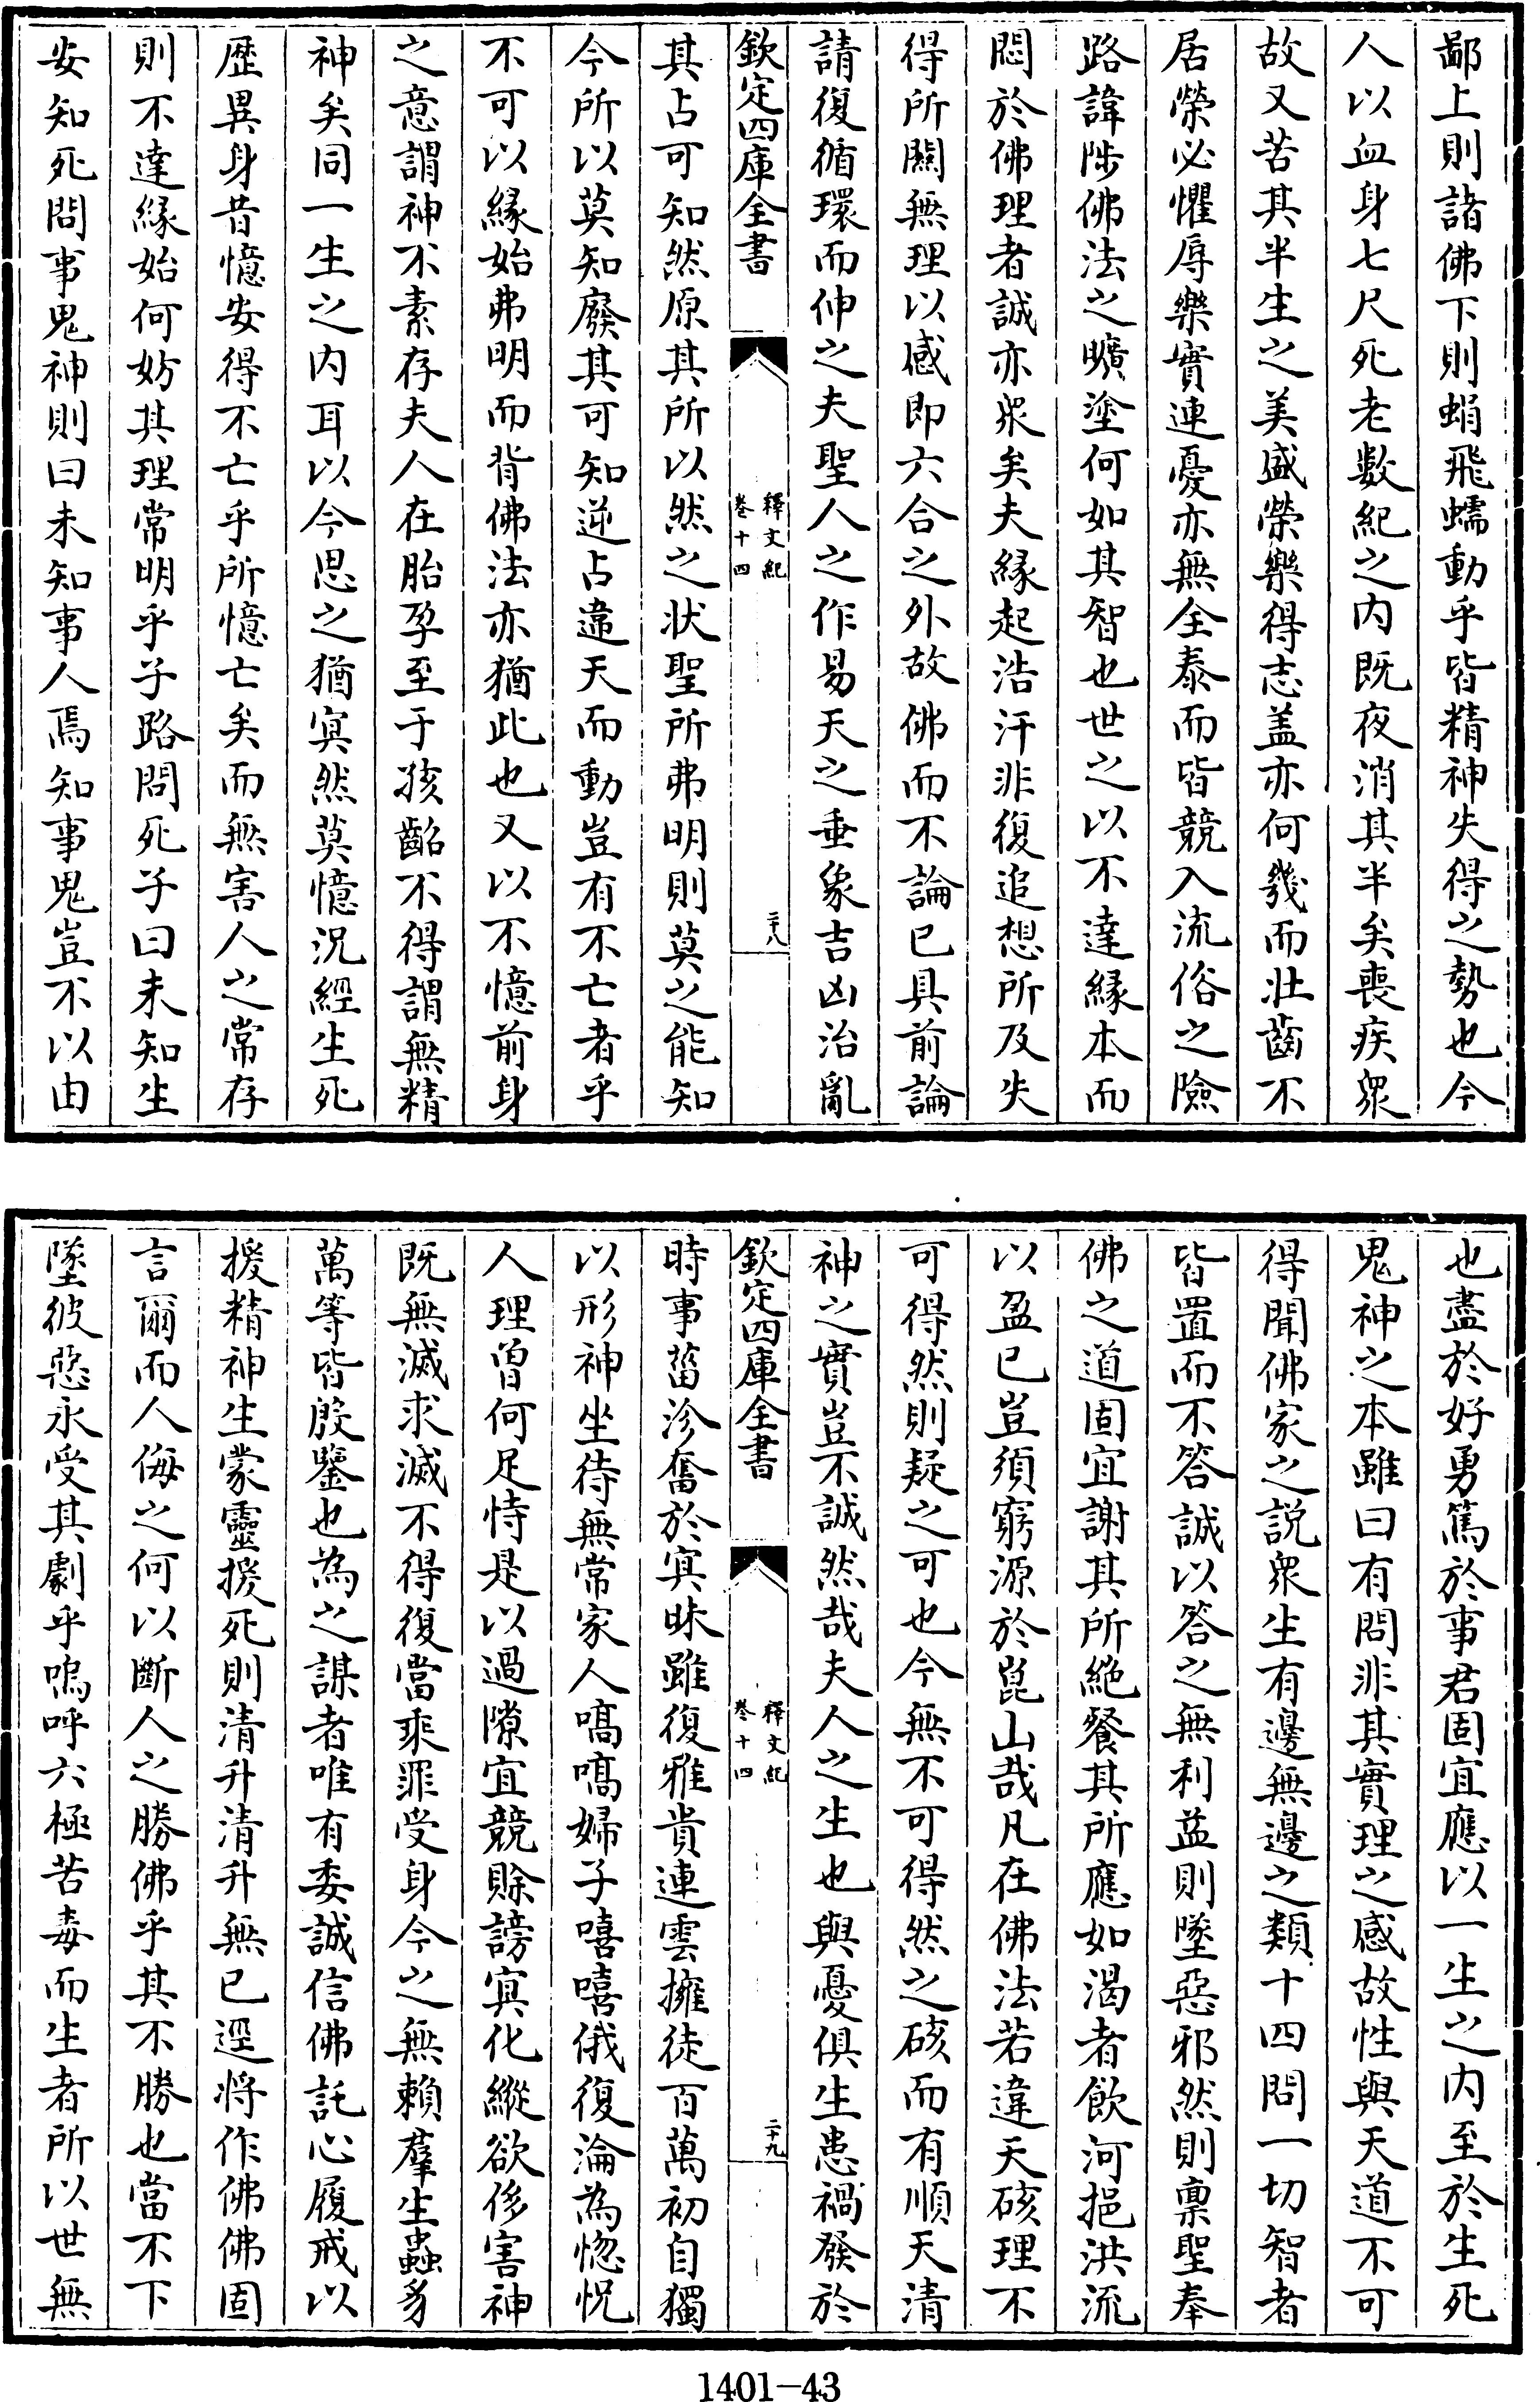 鄙上則諸佛下則蜎飛蠕動乎皆精神失得之勢也今
人以血身七尺死老數紀之内既夜消其半矣喪疾衆
故又苦其半生之美盛榮樂得志盖亦何幾而壯齒不
居榮必懼辱樂實連憂亦無全泰而皆競入流俗之險
路諱陟佛法之曠塗何如其智也世之以不達緣本而
悶於佛理者誠亦衆矣夫緣起浩汗非復追想所及失
得所關無理以感即六合之外故佛而不論已具前論
請復循環而伸之夫聖人之作易天之垂象吉凶治亂
欽定四庫全書
釋文紀
卷十四
二十八
其占可知然原其所以然之状聖所弗明則莫之能知
今所以莫知廢其可知逆占違天而動豈有不亡者乎
不可以緣始弗明而背佛法亦猶此也又以不憶前身
之意謂神不素存夫人在胎孕至于孩齠不得謂無精
神矣同一生之内耳以今思之猶冥然莫憶況經生死
歷異身昔憶安得不亡乎所憶亡矣而無害人之常存
則不達緣始何妨其理常明乎子路問死子曰未知生
安知死問事鬼神則曰未知事人焉知事鬼豈不以由
也盡於好勇篤於事君固宜應以一生之内至於生死
鬼神之本雖曰有問非其實理之感故性與天道不可
得聞佛家之説衆生有邊無邊之類十四問一切智者
皆置而不答誠以答之無利益則墜惡邪然則禀聖奉
佛之道固宜謝其所絶餐其所應如渇者飲河挹洪流
以盈已豈須窮源於崑山哉凡在佛法若違天硋理不
可得然則疑之可也今無不可得然之硋而有順天清
神之實豈不誠然哉夫人之生也與憂俱生患禍發於
欽定四庫全書
釋文紀
卷十四
二十九
時事菑沴奮於寘昧雖復雅貴連雲擁徒百萬初自獨
以形神坐待無常家人嗃嗃婦子嘻嘻俄復淪為惚怳
人理曾何足恃是以過隙宜競賒謗冥化縱欲侈害神
既無滅求滅不得復當乘罪受身今之無賴羣生蟲豸
萬等皆殷鑒也為之謀者唯有委誠信佛託心履戒以
援精神生蒙靈援死則清升清升無已逕將作佛佛固
言爾而人侮之何以斷人之勝佛乎其不勝也當不下
墜彼惡永受其劇乎嗚呼六極苦毒而生者所以世無
1401-43